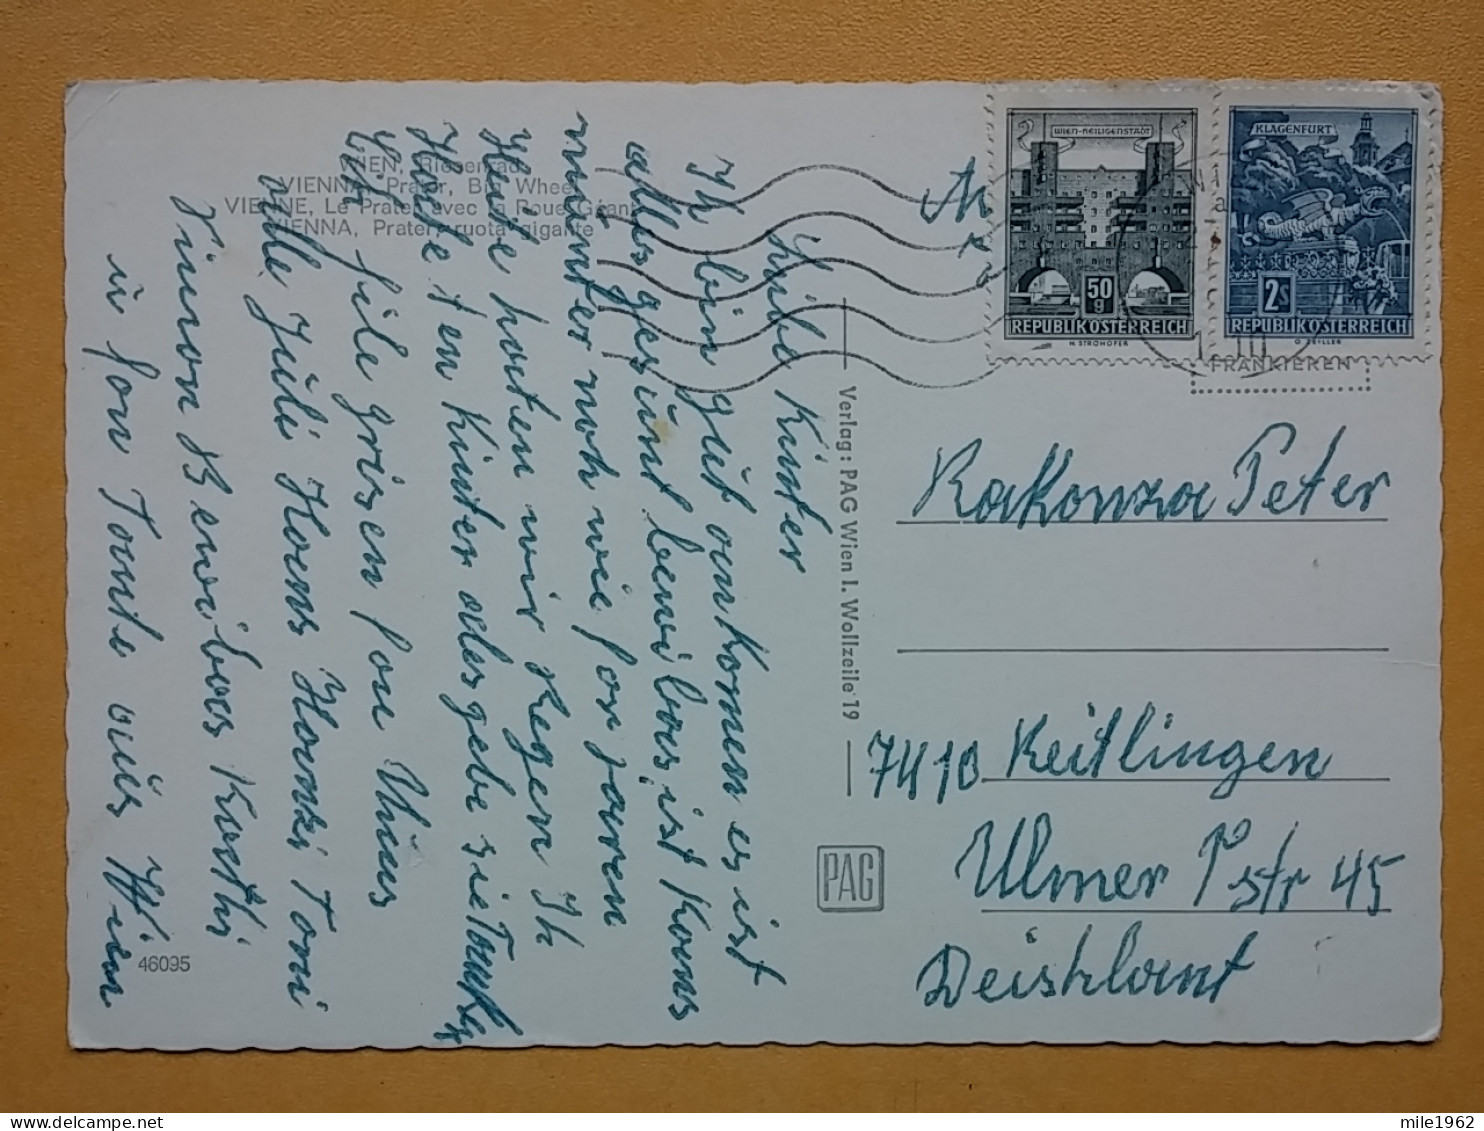 WIEN, Riesenrad
VIENNA, Prater, Big Wheel
VIENNE, Le Prater avec la Roue Géante
VIENNA, Prater, ruota gigante
Libe Kinter
Ih bin güt ankomen es ist
alles gesünt bewi boas ist Kons
münter noh wie for jaren
Heite hoten wir Regen Ih
Hoete ten Kinter oles gebe sie
Eih file grisen fon Uns
alle Jüli Hons Honzi Toni
Simon B Kathi
ü fon Tonte aüs Wien
46095
Verlag: PAG Wien I. Wollzeile 19
PAG
WIEN-HEILIGENSTADT
50
g
REPUBLIK ÖSTERREICH
H. STROHOFER
KLAGENFURT
2s
REPUBLIK ÖSTERREICH
FRANKIEREN
Rakonza Peter
7410 Reitlingen
Ulmer Str 45
Deishlant
mile1962